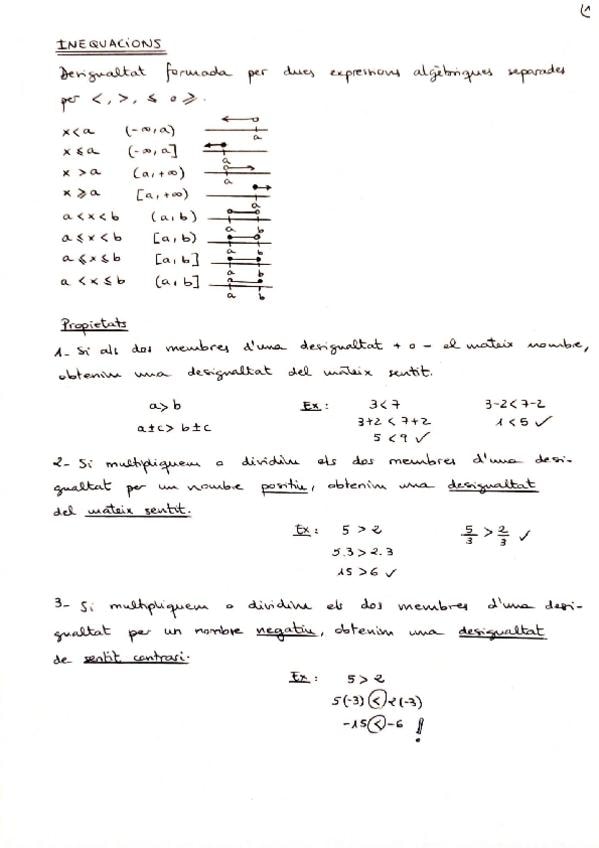 1
INEQUACIONS
Desigualtat formada per dues expressions algèbriques separades
per <, >, ≤ o ≥.
x < a (-∞, a) a
x ≤ a (-∞, a] a
x > a (a, +∞) a
x ≥ a [a, +∞) a
a < x < b (a, b) a b
a ≤ x < b [a, b) a b
a ≤ x ≤ b [a, b] a b
a < x ≤ b (a, b] a b
Propietats
1- Si als dos membres d'una desigualtat + o - el mateix nombre,
obtenim una desigualtat del mateix sentit.
a > b Ex: 3 < 7 3-2 < 7-2
a ± c > b ± c 3+2 < 7+2 1 < 5 ✓
5 < 9 ✓
2- Si multipliquem o dividim els dos membres d'una desi-
gualtat per un nombre positiu, obtenim una desigualtat
del mateix sentit.
Ex: 5 > 2 5/3 > 2/3 ✓
5.3 > 2.3
15 > 6 ✓
3- Si multipliquem o dividim els dos membres d'una desi-
gualtat per un nombre negatiu, obtenim una desigualtat
de sentit contrari.
Ex: 5 > 2
5(-3) < 2(-3)
-15 < -6 !